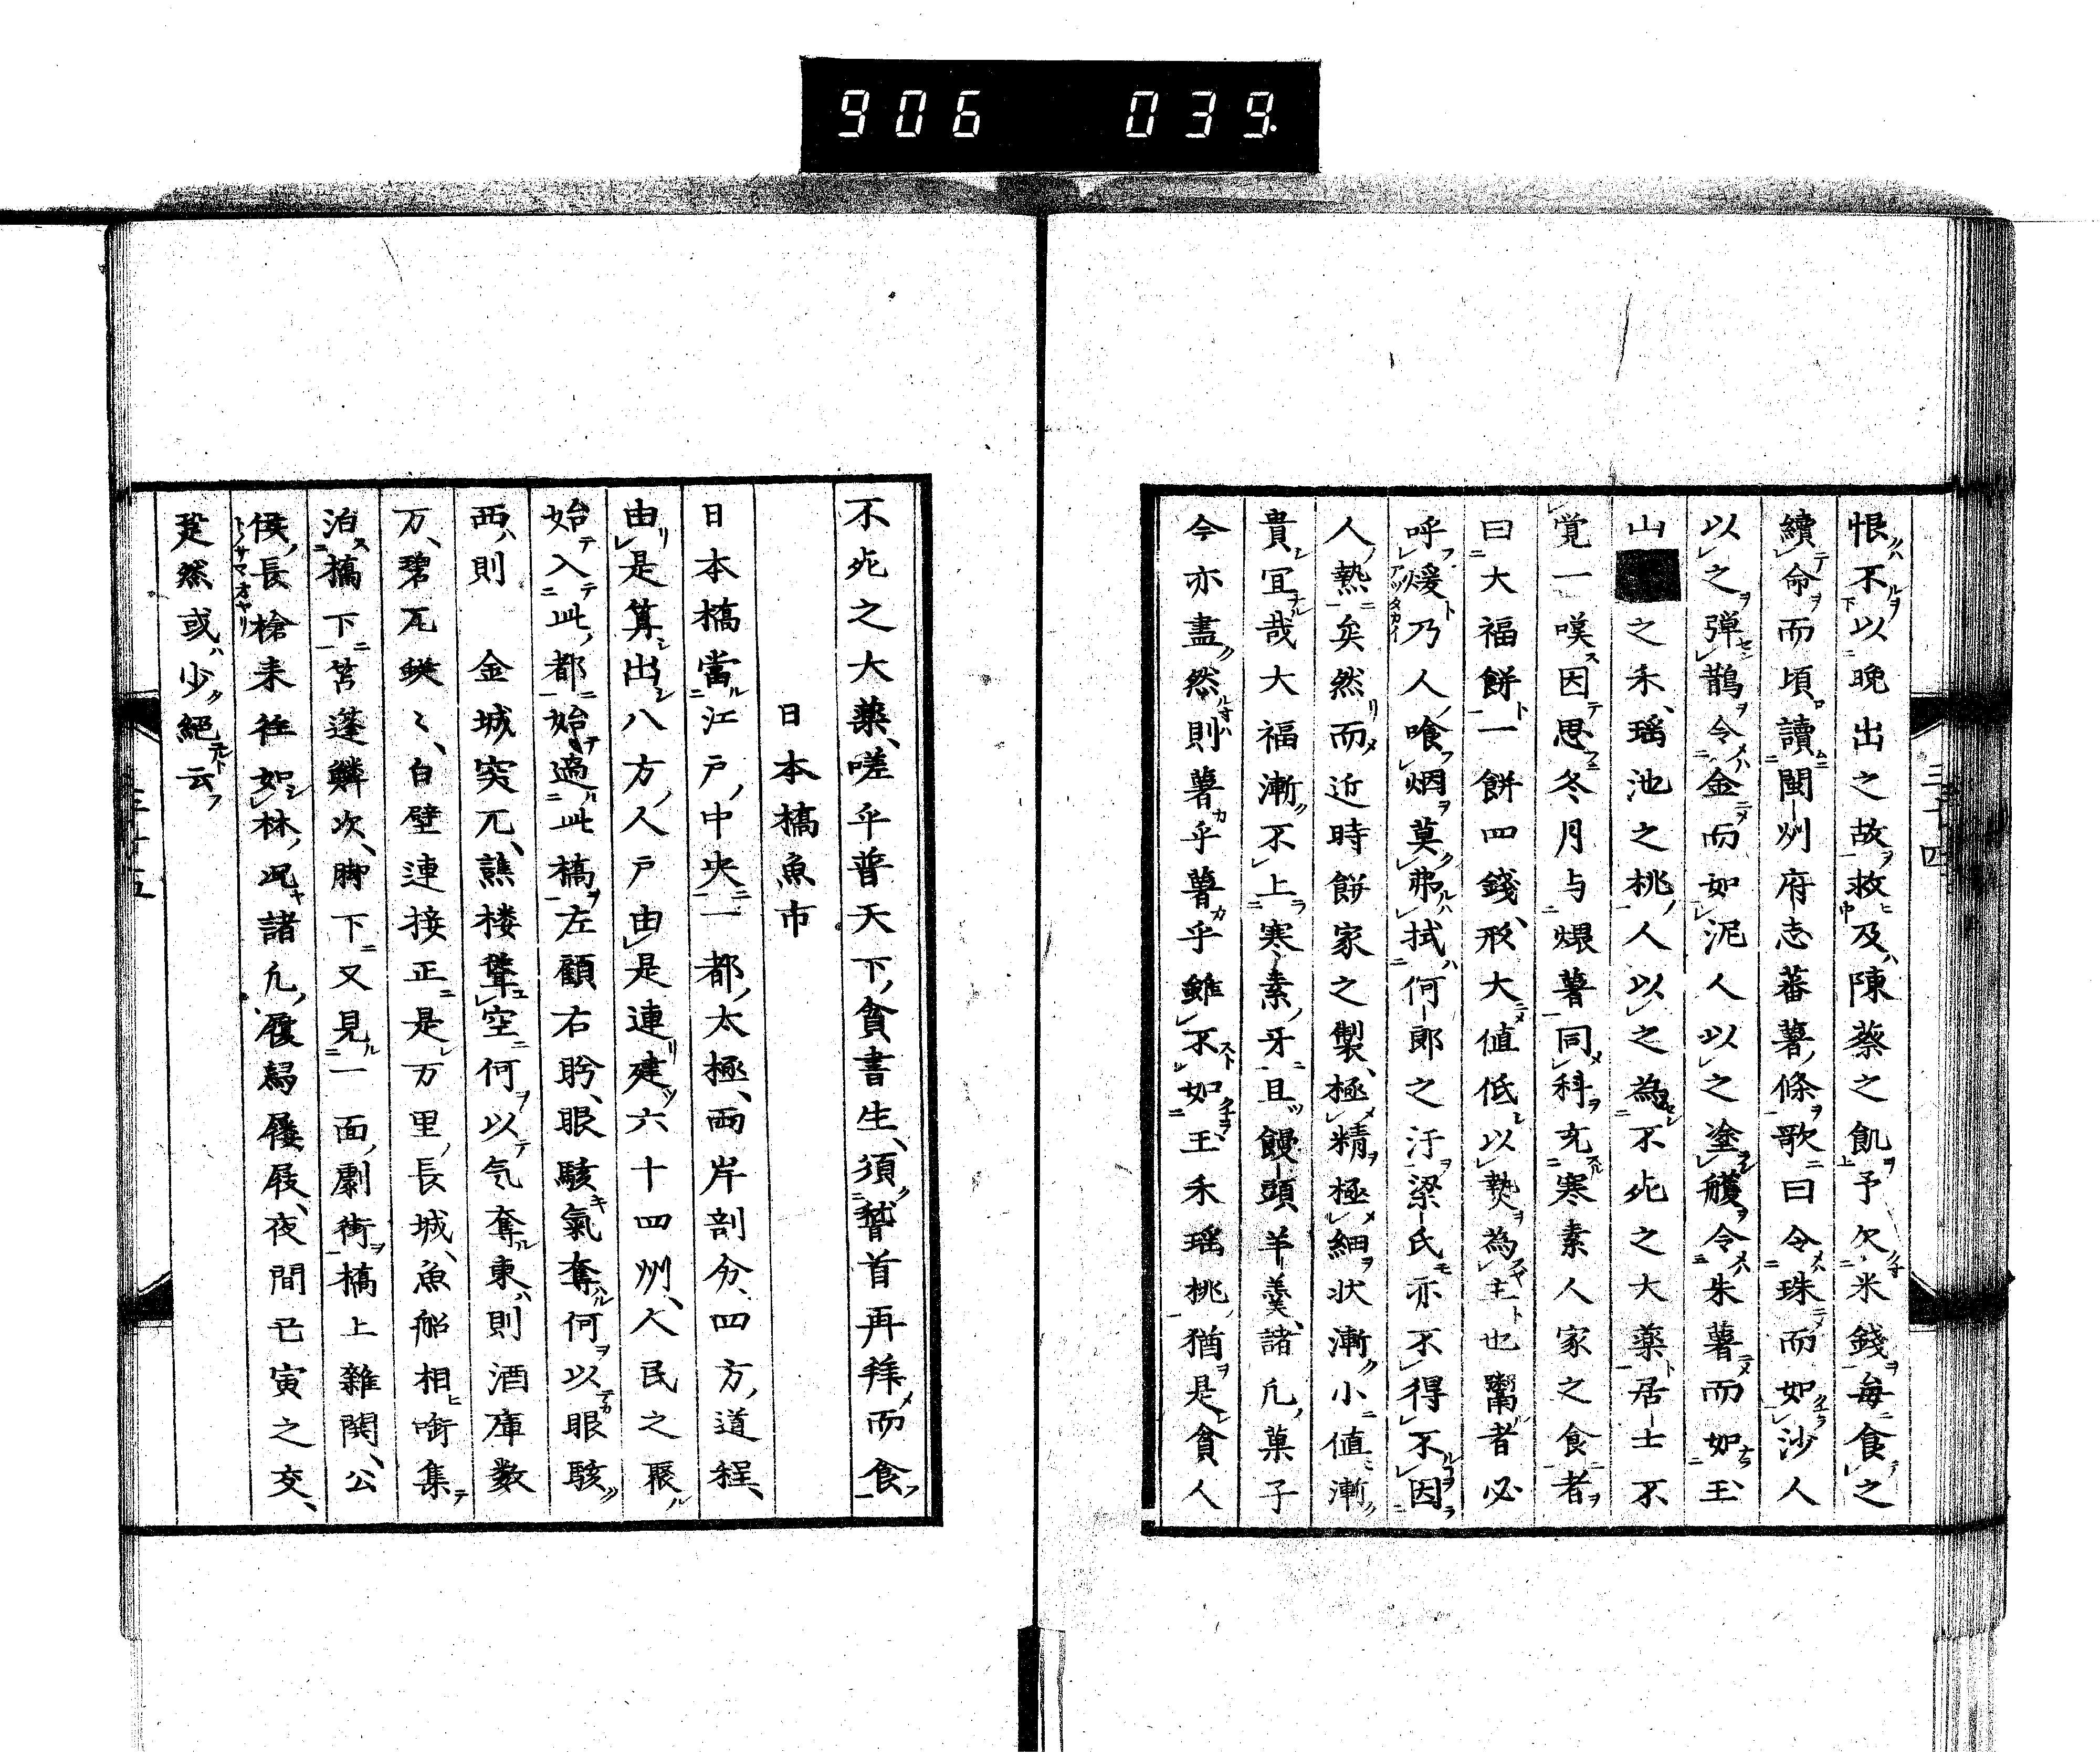 906 039.
三十四
恨不以晚出之故救及陳蔡之飢予欠米錢每食之
續命而頃讀閩州府志蕃薯條歌曰令珠而如沙人
以之彈鵲令金而如泥人以之塗艧令朱薯而如玉
山之禾瑤池之桃人以之為不死之大薬居士不
覚一嘆因思冬月与煨薯同科充寒素人家之食者
曰大福餅一餅四錢形大値低以𤍠為主也鬻者必
呼煖乃人喰烟莫弗拭何郎之汗梁氏亦不得不因
人熱矣然而近時餅家之製極精極細状漸小値漸
貴宜哉大福漸不上寒素牙且饅頭羊羹諸凢菓子
今亦盡然則薯乎薯乎雖不如玉禾瑤桃猶是貧人
不死之大薬嗟乎普天下貧書生須嵇首再拜而食
日本橋魚市
日本橋當江戸中央一都太極両岸剖分四方道程
由是算出八方人戸由是連建六十四州人民之聚
始入此都始過此橋左顧右眄眼駭氣奪何以眼駭
西則 金城突兀譙楼聳空何以気奪東則酒庫数
万碧瓦鱗々白壁連接正是万里長城魚船相啣集
泊橋下苫蓬鱗次脚下又見一面劇街橋上雑閙公
侯長槍来徃如林况諸凢履舃屐屐夜間已寅之交
跫然或少絕云
三十五